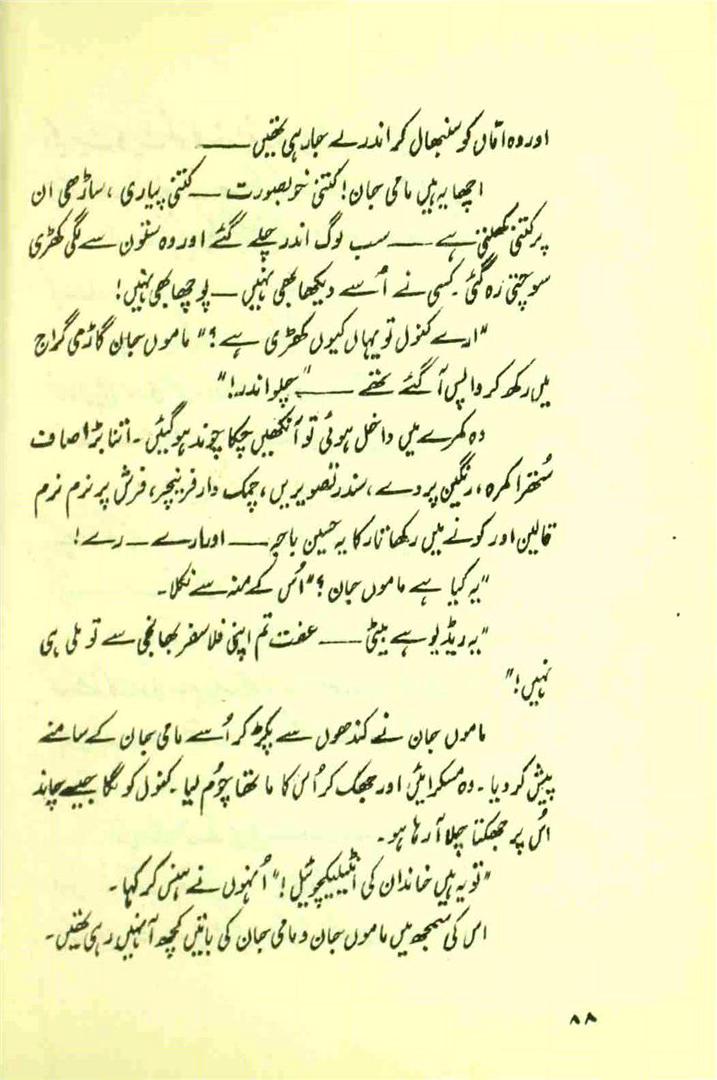 اور وہ امّاں کو سنبھال کر اندر لے جا رہی تھیں ——
اچھا یہ ہیں مامی جان! کتنی خوبصورت — کتنی پیاری، ساڑھی ان
پر کتنی کھلتی ہے —— سب لوگ اندر چلے گئے اور وہ ستون سے لگی کھڑی
سوچتی رہ گئی۔ کسی نے اُسے دیکھا بھی نہیں — پوچھا بھی نہیں!
"ارے کنول تو یہاں کیوں کھڑی ہے؟" ماموں جان گاڑی گراج
میں رکھ کر واپس آ گئے تھے —— "چلو اندر!"
وہ کمرے میں داخل ہوئی تو آنکھیں چکا چوند ہو گئیں۔ اتنا بڑا صاف
سُتھرا کمرہ، رنگین پردے، سندر تصویریں، چمک دار فرنیچر، فرش پر نرم نرم
قالین اور کونے میں رکھا تار کا یہ حسین باجہ —— اور ارے — رے!
"یہ کیا ہے ماموں جان؟" اُس کے منہ سے نکلا۔
"یہ ریڈیو ہے بیٹی —— عفت تم اپنی فلاسفر بھانجی سے تو ملی ہی
نہیں!"
ماموں جان نے کندھوں سے پکڑ کر اُسے مامی جان کے سامنے
پیش کر دیا۔ وہ مسکرائیں اور جھک کر اُس کا ماتھا چوُم لیا۔ کنول کو لگا جیسے چاند
اُس پر جھکتا چلا آ رہا ہو۔
"تو یہ ہیں خاندان کی انٹیلیکچوئیل!" اُنہوں نے ہنس کر کہا۔
اس کی سمجھ میں ماموں جان و مامی جان کی باتیں کچھ آ نہیں رہی تھیں۔
۸۸